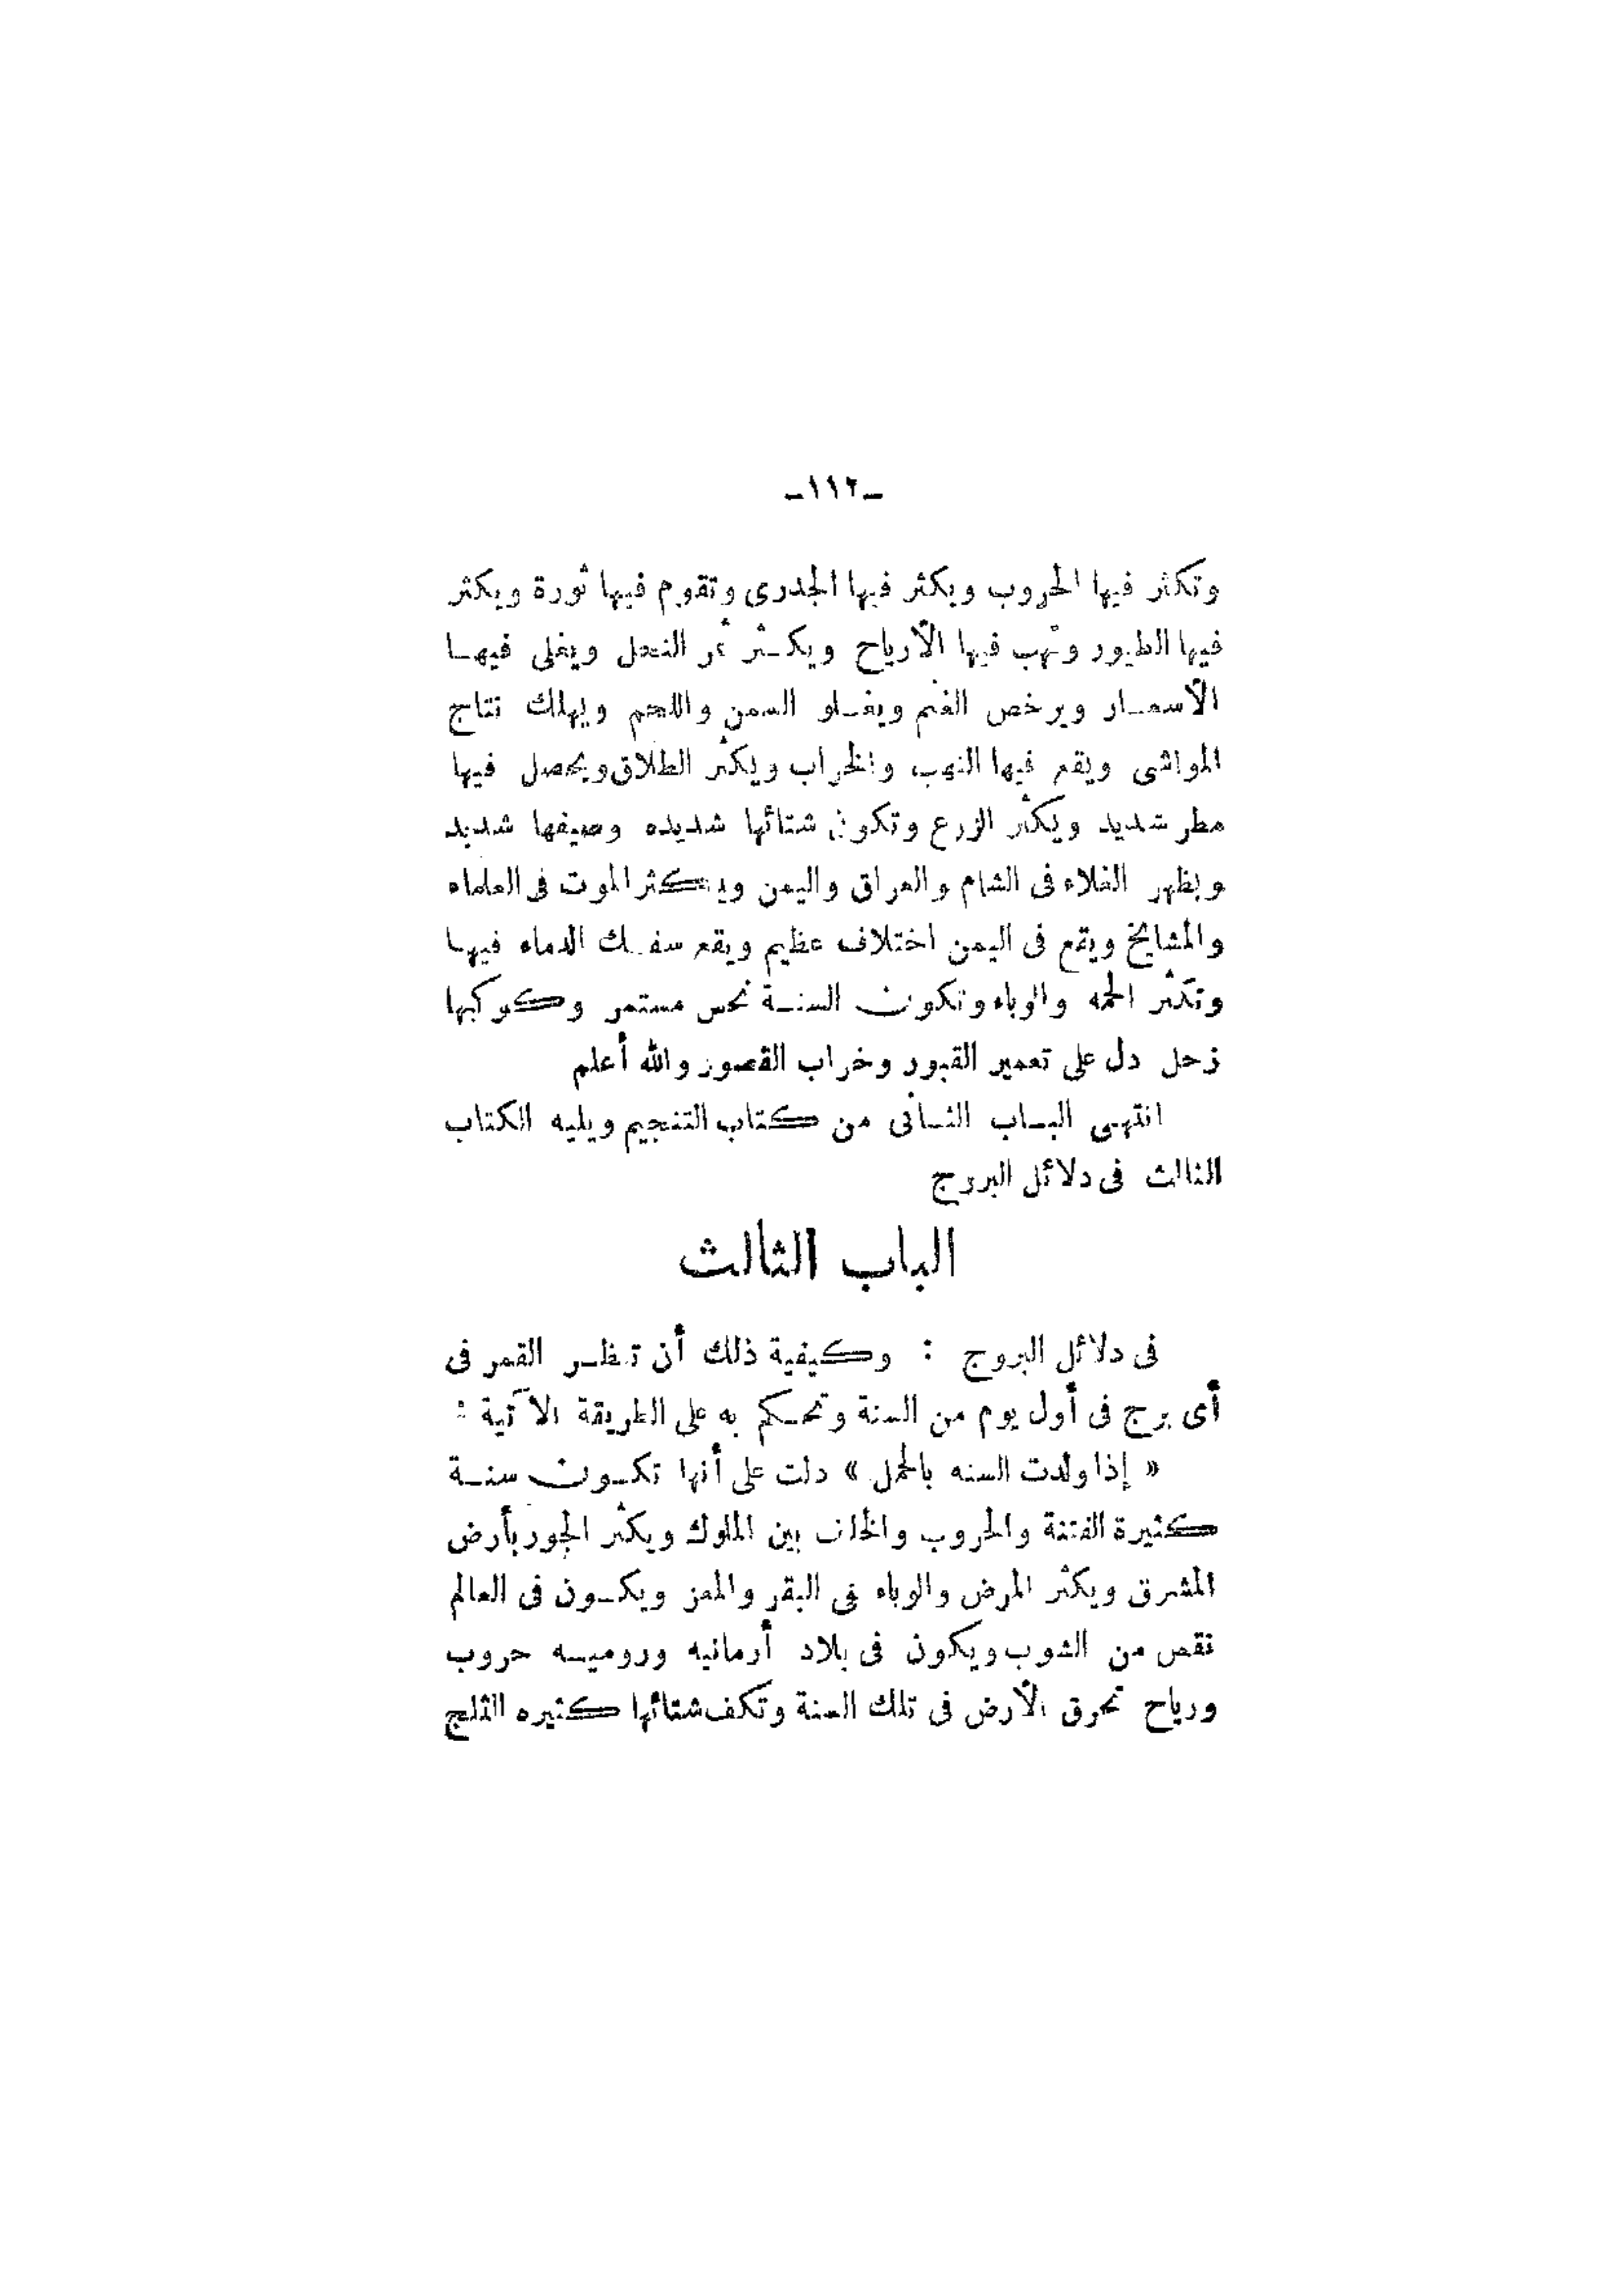 -١١٢-
وتكثر فيها الحروب ويكثر فيها الجدرى وتقوم فيها ثورة ويكثر
فيها الطيور وتهب فيها الأرياح ويكثر ثمر النحل ويغلى فيها
الأسعار ويرخص الغنم ويغلو السمن واللحم ويهلك نتاج
المواشى ويقع فيها النهب والخراب ويكثر الطلاق ويحصل فيها
مطر شديد ويكثر الزرع وتكون شتائها شديده وصيفها شديد
ويظهر الغلاء فى الشام والعراق واليمن ويكثر الموت فى العلماء
والمشايخ ويقع فى اليمن اختلاف عظيم ويقع سفك الدماء فيها
وتكثر الحمه والوباء وتكون السنة نحس مستمر وكوكبها
زحل دل على تعمير القبور وخراب القصور والله أعلم
انتهى الباب الثانى من كتاب التنجيم ويليه الكتاب
الثالث فى دلائل البروج
الباب الثالث
فى دلائل البروج : وكيفية ذلك أن تنظر القمر فى
أى برج فى أول يوم من السنة وتحكم به على الطريقة الآتية :
« إذا ولدت السنه بالحمل » دلت على أنها تكون سنة
كثيرة الفتنة والحروب والخلف بين الملوك ويكثر الجور بأرض
المشرق ويكثر المرض والوباء فى البقر والمعز ويكون فى العالم
نقص من الشوب ويكون فى بلاد أرمانيه وروميه حروب
ورياح تحرق الأرض فى تلك السنة وتكف شتائها كثيره الثلج